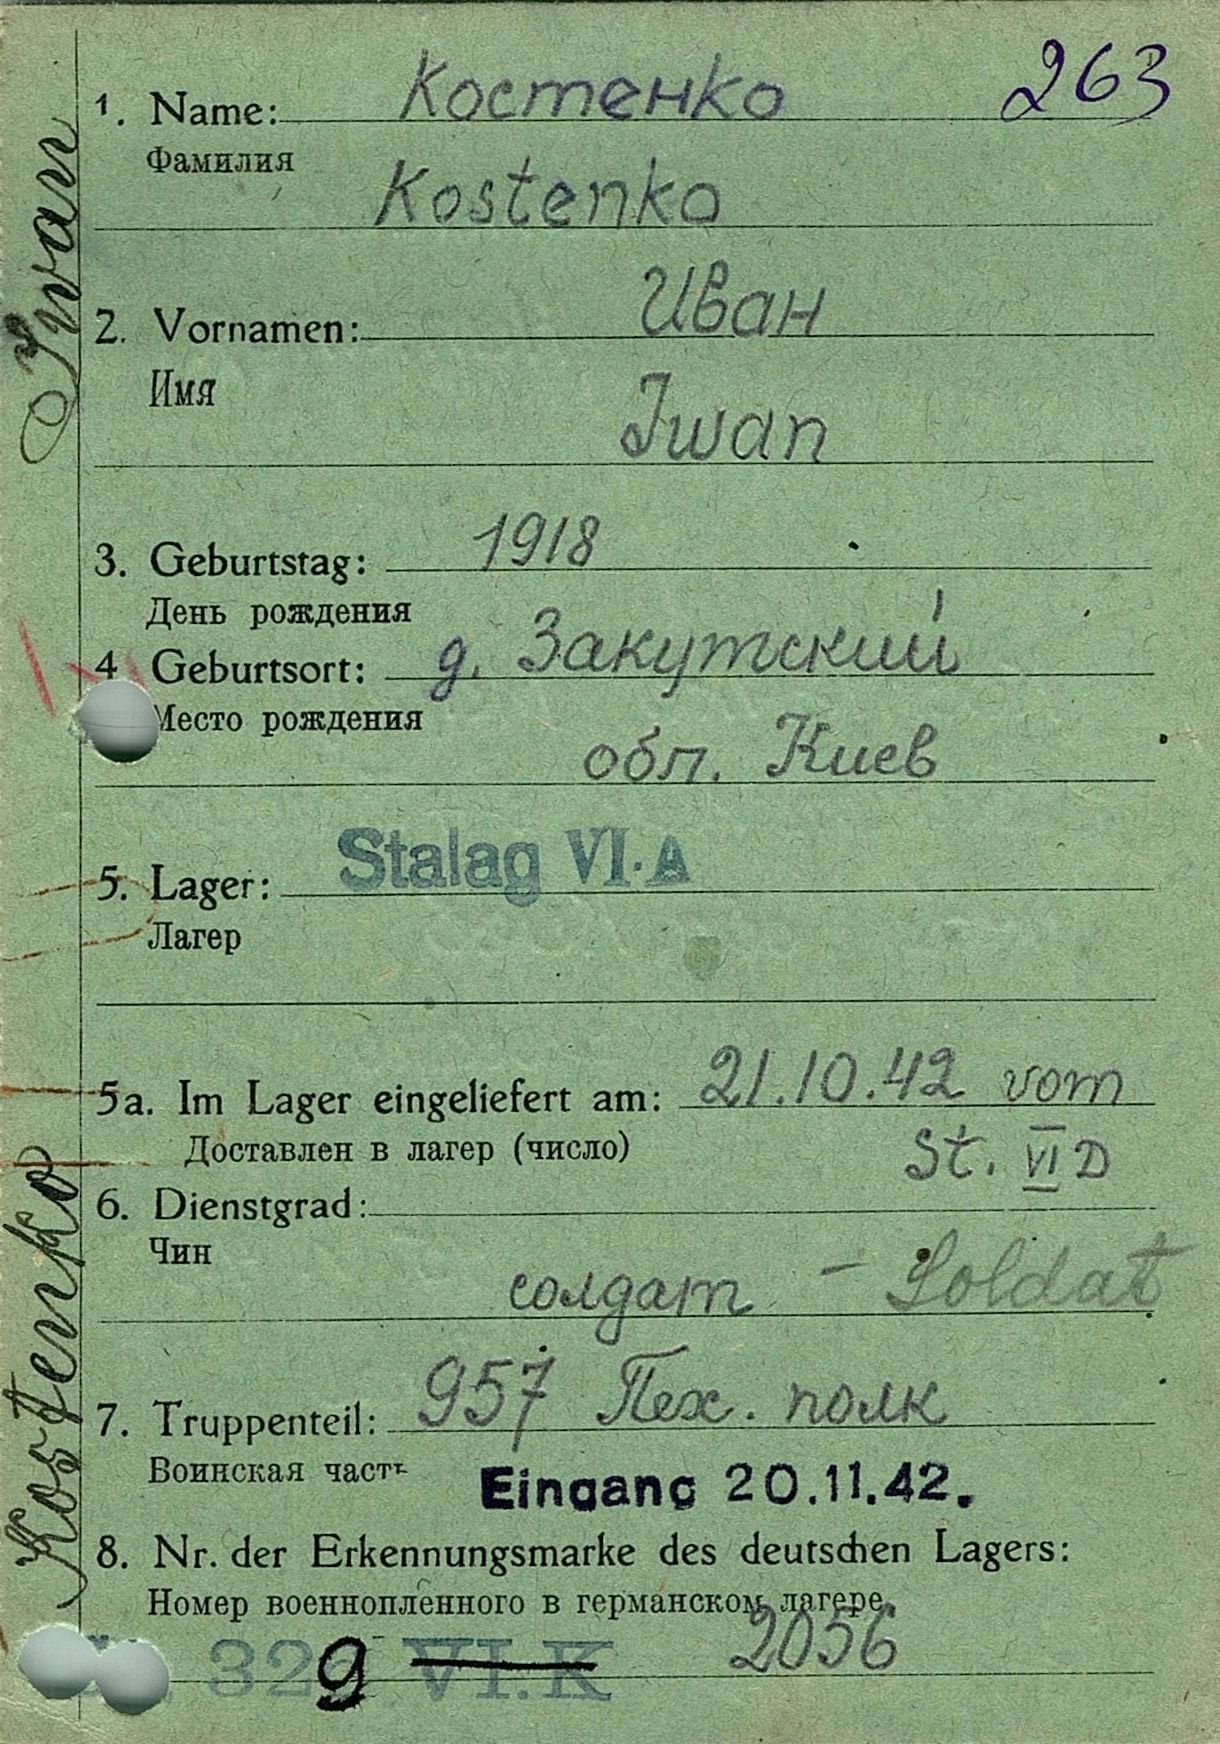 263
1. Name: Костенко
Фамилия
Kostenko
2. Vornamen: Иван
Имя
Iwan
3. Geburtstag: 1918
День рождения
4 Geburtsort: д. Закутский
Место рождения
обл. Киев
5. Lager: Stalag VI·A
Лагер
5a. Im Lager eingeliefert am: 21.10.42 vom
Доставлен в лагер (число) St. VI D
6. Dienstgrad:
Чин
солдат – Soldat
7. Truppenteil: 957 Пех. полк
Воинская часть Eingang 20.11.42.
8. Nr. der Erkennungsmarke des deutschen Lagers:
Номер военнопленного в германском лагере
329 VI.K 2056
Kostenko Iwan